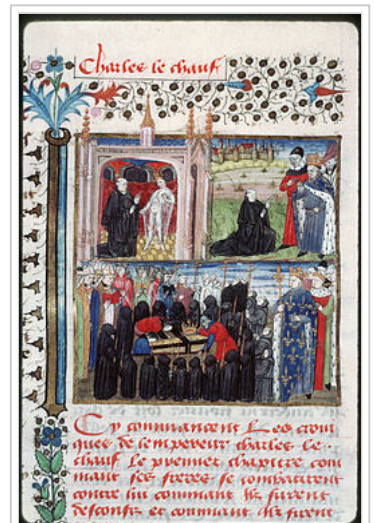 Charles le chauf
Cy commancent Les croni
ques de lempereur charles le
chauf Le premier chapitre com
mant ses freres se combatirent
contre lui commant ilz furent
desconfiz et commant ilz firent